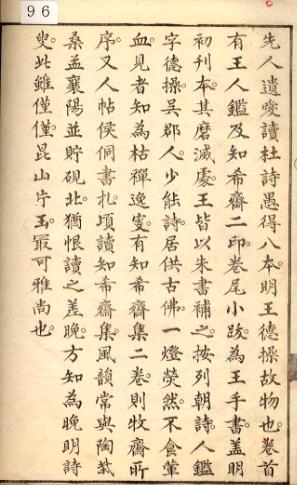 96
先人遺愛讀杜詩愚得八本。明王德操故物也。卷首
有王人鑑及知希齋二印。卷尾小跋。為王手書。蓋明
初刊本。其磨滅處。王皆以朱書補之。按列朝詩。人鑑
字德操。吳郡人。少能詩。居供古佛。一燈熒然。不食葷
血。見者知為枯禪逸叟。有知希齋集二卷。則牧齋所
序。又人帖侯侗書札。項讀知希齋集。風韻常與陶柴
桑孟襄陽並貯硯北。猶恨讀之差晚。方知為晚明詩
叟。此雖僅僅。昆山片玉。最可雅尚也。